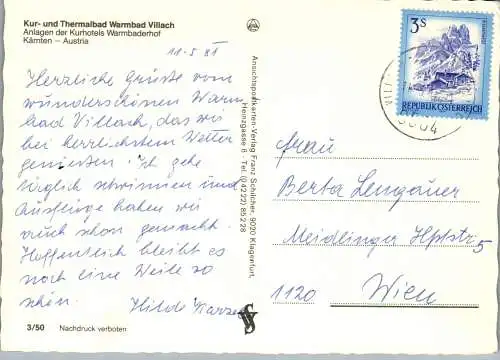 Kur- und Thermalbad Warmbad Villach
Anlagen der Kurhotels Warmbaderhof
Kärnten – Austria
11-5 81
Herzliche Grüße vom
wunderschönen Warm
bad Villach, das wir
bei herrlichstem Wetter
genießen. Ich gehe
täglich schwimmen und
Ausflüge haben wir
auch schon gemacht.
Hoffentlich bleibt es
noch eine Weile so
schön.
Hilde
3/50 Nachdruck verboten
Ansichtspostkarten-Verlag Franz Schilcher, 9020 Klagenfurt,
Heinzgasse 6 - Tel. (04222) 85 2 28
3 S
REPUBLIK ÖSTERREICH
9504
Frau
Berta Lengauer
Meidlinger Hptstr 5
1120 Wien